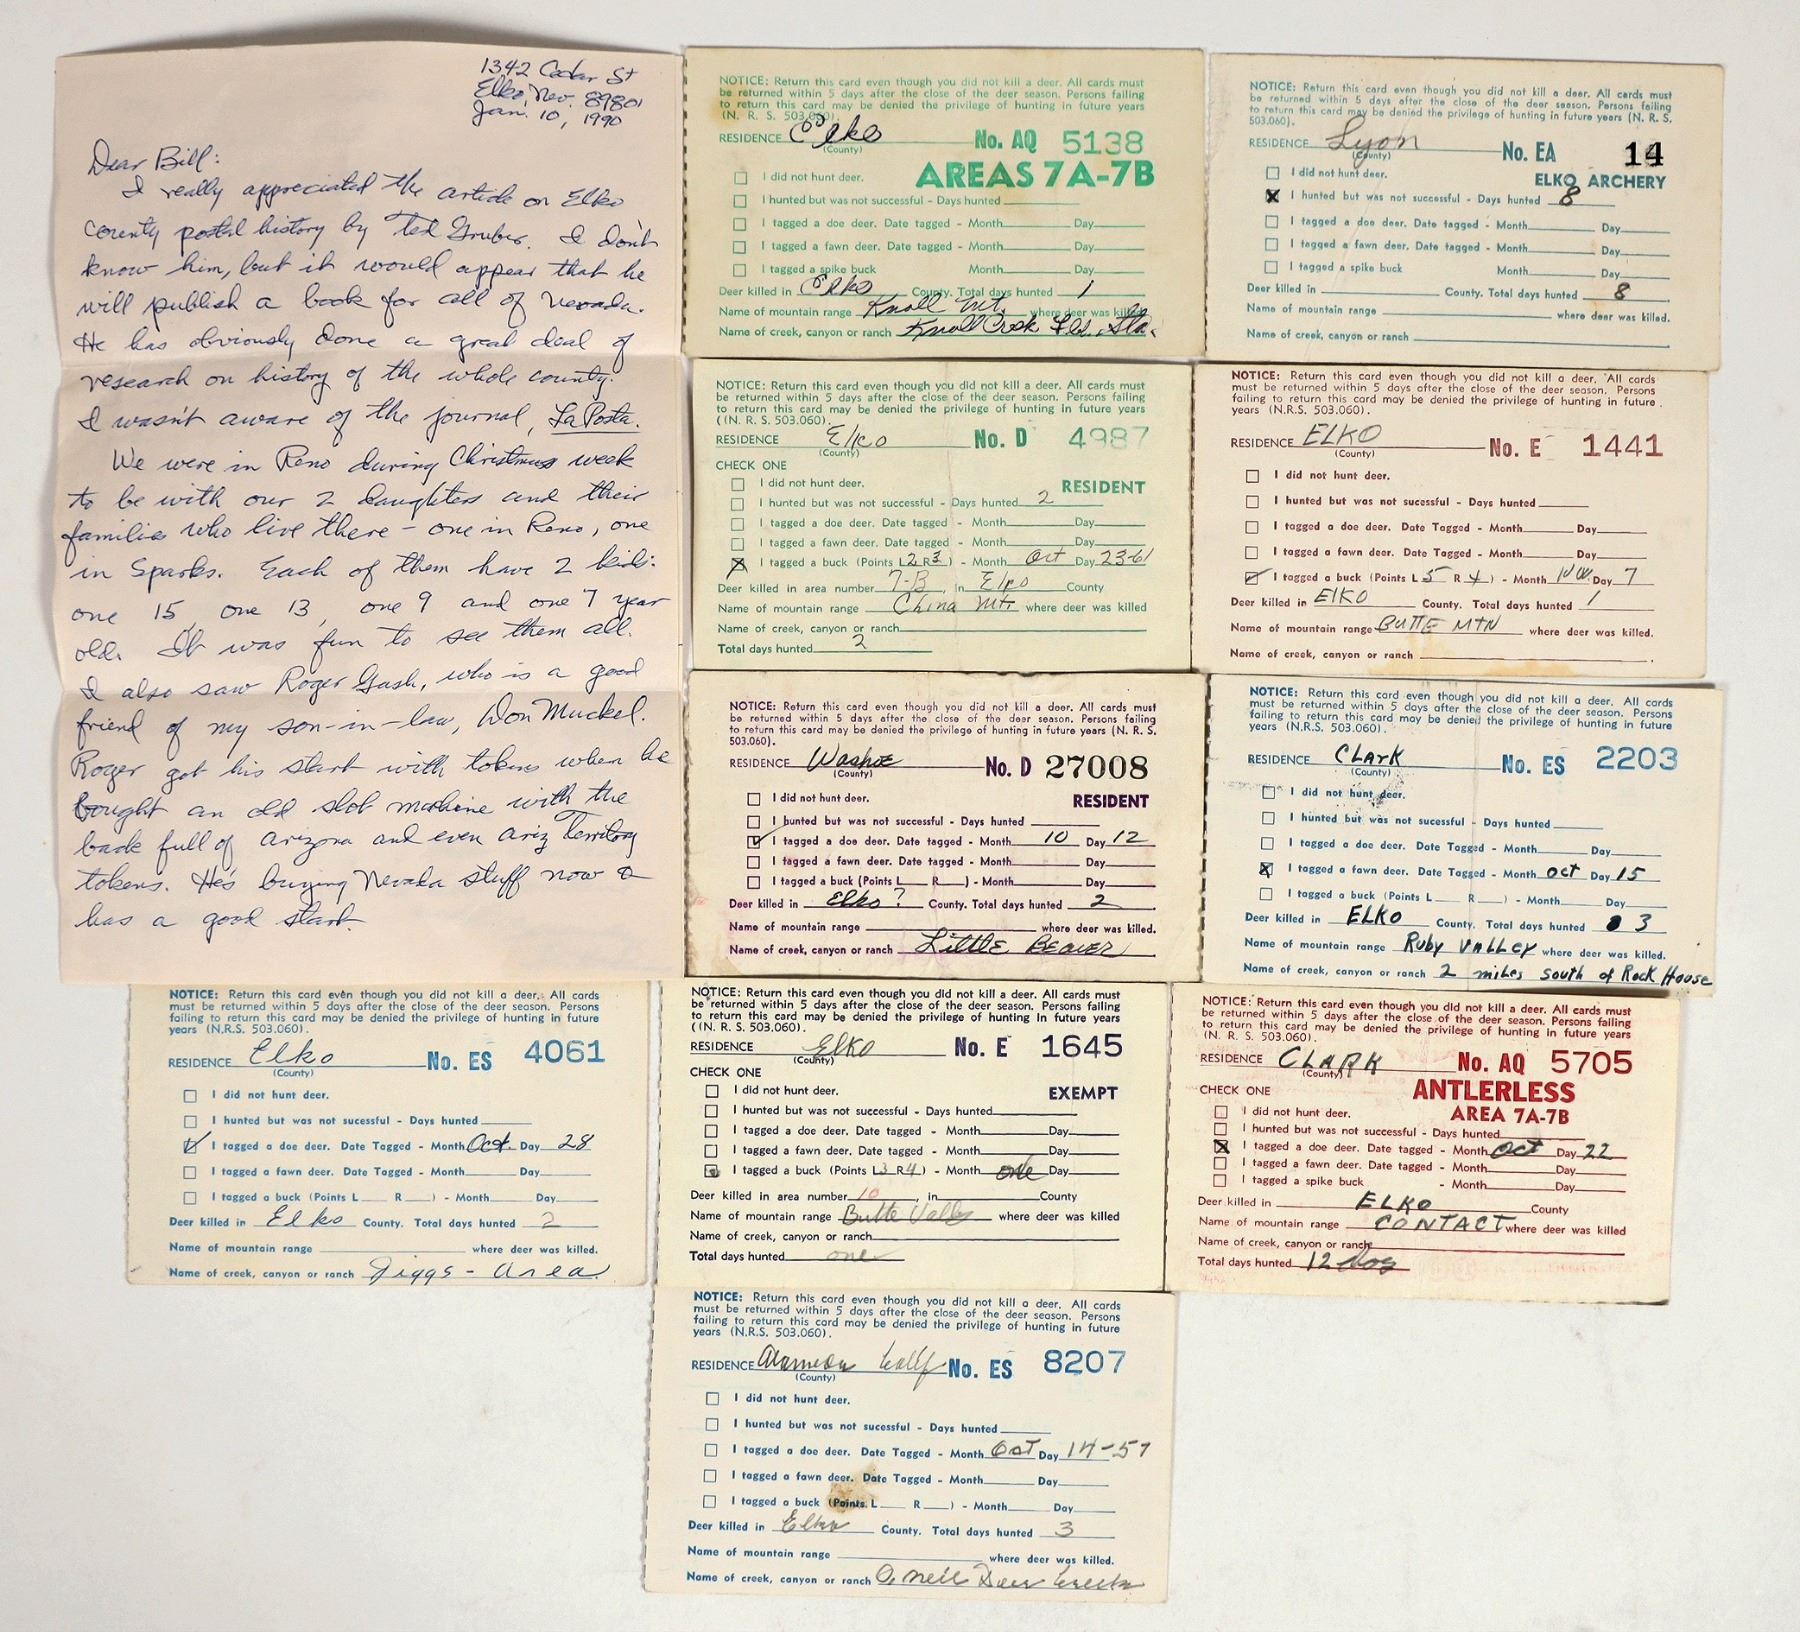 1342 Cedar St
Elko, Nev. 89801
Jan. 10, 1990
Dear Bill:
I really appreciated the article on Elko
county postal history by Ted Gruber. I don't
know him, but it would appear that he
will publish a book for all of Nevada.
He has obviously done a great deal of
research on history of the whole county.
I wasn't aware of the journal, La Posta.
We were in Reno during Christmas week
to be with our 2 daughters and their
families who live there – one in Reno, one
in Sparks. Each of them have 2 kids:
one 15, one 13, one 9 and one 7 year
old. It was fun to see them all.
I also saw Roger Gash, who is a good
friend of my son-in-law, Don Muckel.
Roger got his start with tokens when he
bought an old slot machine with the
back full of Arizona and even Ariz Territory
tokens. He's buying Nevada stuff now &
has a good start.
NOTICE: Return this card even though you did not kill a deer. All cards must
be returned within 5 days after the close of the deer season. Persons failing
to return this card may be denied the privilege of hunting in future years
(N. R. S. 503.060).
RESIDENCE Elko No. AQ 5138
(County)
AREAS 7A-7B
I did not hunt deer.
I hunted but was not successful - Days hunted
I tagged a doe deer. Date tagged - Month Day
I tagged a fawn deer. Date tagged - Month Day
I tagged a spike buck Month Day
Deer killed in Elko County. Total days hunted 1
Name of mountain range Knoll Mt. where deer was killed.
Name of creek, canyon or ranch Knoll Creek Fld. Sta.
NOTICE: Return this card even though you did not kill a deer. All cards must
be returned within 5 days after the close of the deer season. Persons failing
to return this card may be denied the privilege of hunting in future years (N. R. S.
503.060).
RESIDENCE Lyon No. EA 14
(County)
ELKO ARCHERY
I did not hunt deer.
X I hunted but was not successful - Days hunted 8
I tagged a doe deer. Date tagged - Month Day
I tagged a fawn deer. Date tagged - Month Day
I tagged a spike buck Month Day
Deer killed in County. Total days hunted 8
Name of mountain range where deer was killed.
Name of creek, canyon or ranch
NOTICE: Return this card even though you did not kill a deer. All cards must
be returned within 5 days after the close of the deer season. Persons failing
to return this card may be denied the privilege of hunting in future years
((N. R. S. 503.060).
RESIDENCE Elko No. D 4987
(County)
CHECK ONE
I did not hunt deer. RESIDENT
I hunted but was not successful - Days hunted 2
I tagged a doe deer. Date tagged - Month Day
I tagged a fawn deer. Date tagged - Month Day
X I tagged a buck (Points L2 R3) - Month Oct Day 23-61
Deer killed in area number 7-B, in Elko County
Name of mountain range China Mtr where deer was killed
Name of creek, canyon or ranch
Total days hunted 2
NOTICE: Return this card even though you did not kill a deer. All cards
must be returned within 5 days after the close of the deer season. Persons
failing to return this card may be denied the privilege of hunting in future
years (N.R.S. 503.060).
RESIDENCE ELKO No. E 1441
(County)
I did not hunt deer.
I hunted but was not sucessful - Days hunted
I tagged a doe deer. Date Tagged - Month Day
I tagged a fawn deer. Date Tagged - Month Day
I tagged a buck (Points L 5 R 4) - Month NOV. Day 7
Deer killed in ELKO County. Total days hunted 1
Name of mountain range BUTTE MTN where deer was killed.
Name of creek, canyon or ranch
NOTICE: Return this card even though you did not kill a deer. All cards must
be returned within 5 days after the close of the deer season. Persons failing
to return this card may be denied the privilege of hunting in future years (N. R. S.
503.060).
RESIDENCE Washoe No. D 27008
(County)
I did not hunt deer. RESIDENT
I hunted but was not successful - Days hunted
I tagged a doe deer. Date tagged - Month 10 Day 12
I tagged a fawn deer. Date tagged - Month Day
I tagged a buck (Points L R) - Month Day
Deer killed in Elko? County. Total days hunted 2
Name of mountain range where deer was killed.
Name of creek, canyon or ranch Little Beaver
NOTICE: Return this card even though you did not kill a deer. All cards
must be returned within 5 days after the close of the deer season. Persons
failing to return this card may be denied the privilege of hunting in future
years (N.R.S. 503.060).
RESIDENCE CLARK No. ES 2203
(County)
I did not hunt deer.
I hunted but was not sucessful - Days hunted
I tagged a doe deer. Date Tagged - Month Day
X I tagged a fawn deer. Date Tagged - Month Oct Day 15
I tagged a buck (Points L R) - Month Day
Deer killed in ELKO County. Total days hunted 3
Name of mountain range Ruby VALLEY where deer was killed.
Name of creek, canyon or ranch 2 miles south of Rock House
NOTICE: Return this card even though you did not kill a deer. All cards
must be returned within 5 days after the close of the deer season. Persons
failing to return this card may be denied the privilege of hunting in future
years (N.R.S. 503.060).
RESIDENCE Elko No. ES 4061
(County)
I did not hunt deer.
I hunted but was not sucessful - Days hunted
I tagged a doe deer. Date Tagged - Month Oct. Day 28
I tagged a fawn deer. Date Tagged - Month Day
I tagged a buck (Points L R) - Month Day
Deer killed in Elko County. Total days hunted 2
Name of mountain range where deer was killed.
Name of creek, canyon or ranch Jiggs - area
NOTICE: Return this card even though you did not kill a deer. All cards must
be returned within 5 days after the close of the deer season. Persons failing
to return this card may be denied the privilege of hunting in future years
((N. R. S. 503.060).
RESIDENCE Elko No. E 1645
(County)
CHECK ONE
I did not hunt deer. EXEMPT
I hunted but was not successful - Days hunted
I tagged a doe deer. Date tagged - Month Day
I tagged a fawn deer. Date tagged - Month Day
I tagged a buck (Points L3 R4) - Month one Day
Deer killed in area number 10, in County
Name of mountain range Butte Valley where deer was killed
Name of creek, canyon or ranch
Total days hunted one
NOTICE: Return this card even though you did not kill a deer. All cards
must be returned within 5 days after the close of the deer season. Persons failing
to return this card may be denied the privilege of hunting in future years
(N. R. S. 503.060).
RESIDENCE CLARK No. AQ 5705
(County)
CHECK ONE ANTLERLESS
I did not hunt deer. AREA 7A-7B
I hunted but was not successful - Days hunted
X I tagged a doe deer. Date tagged - Month Oct Day 22
I tagged a fawn deer. Date tagged - Month Day
I tagged a spike buck - Month Day
Deer killed in ELKO County
Name of mountain range CONTACT where deer was killed
Name of creek, canyon or ranch
Total days hunted 12
NOTICE: Return this card even though you did not kill a deer. All cards
must be returned within 5 days after the close of the deer season. Persons
failing to return this card may be denied the privilege of hunting in future
years (N.R.S. 503.060).
RESIDENCE Alameda Calif No. ES 8207
(County)
I did not hunt deer.
I hunted but was not sucessful - Days hunted
I tagged a doe deer. Date Tagged - Month Oct Day 14-57
I tagged a fawn deer. Date Tagged - Month Day
I tagged a buck (Points L R) - Month Day
Deer killed in Elko County. Total days hunted 3
Name of mountain range where deer was killed.
Name of creek, canyon or ranch O,neil Deer Creek